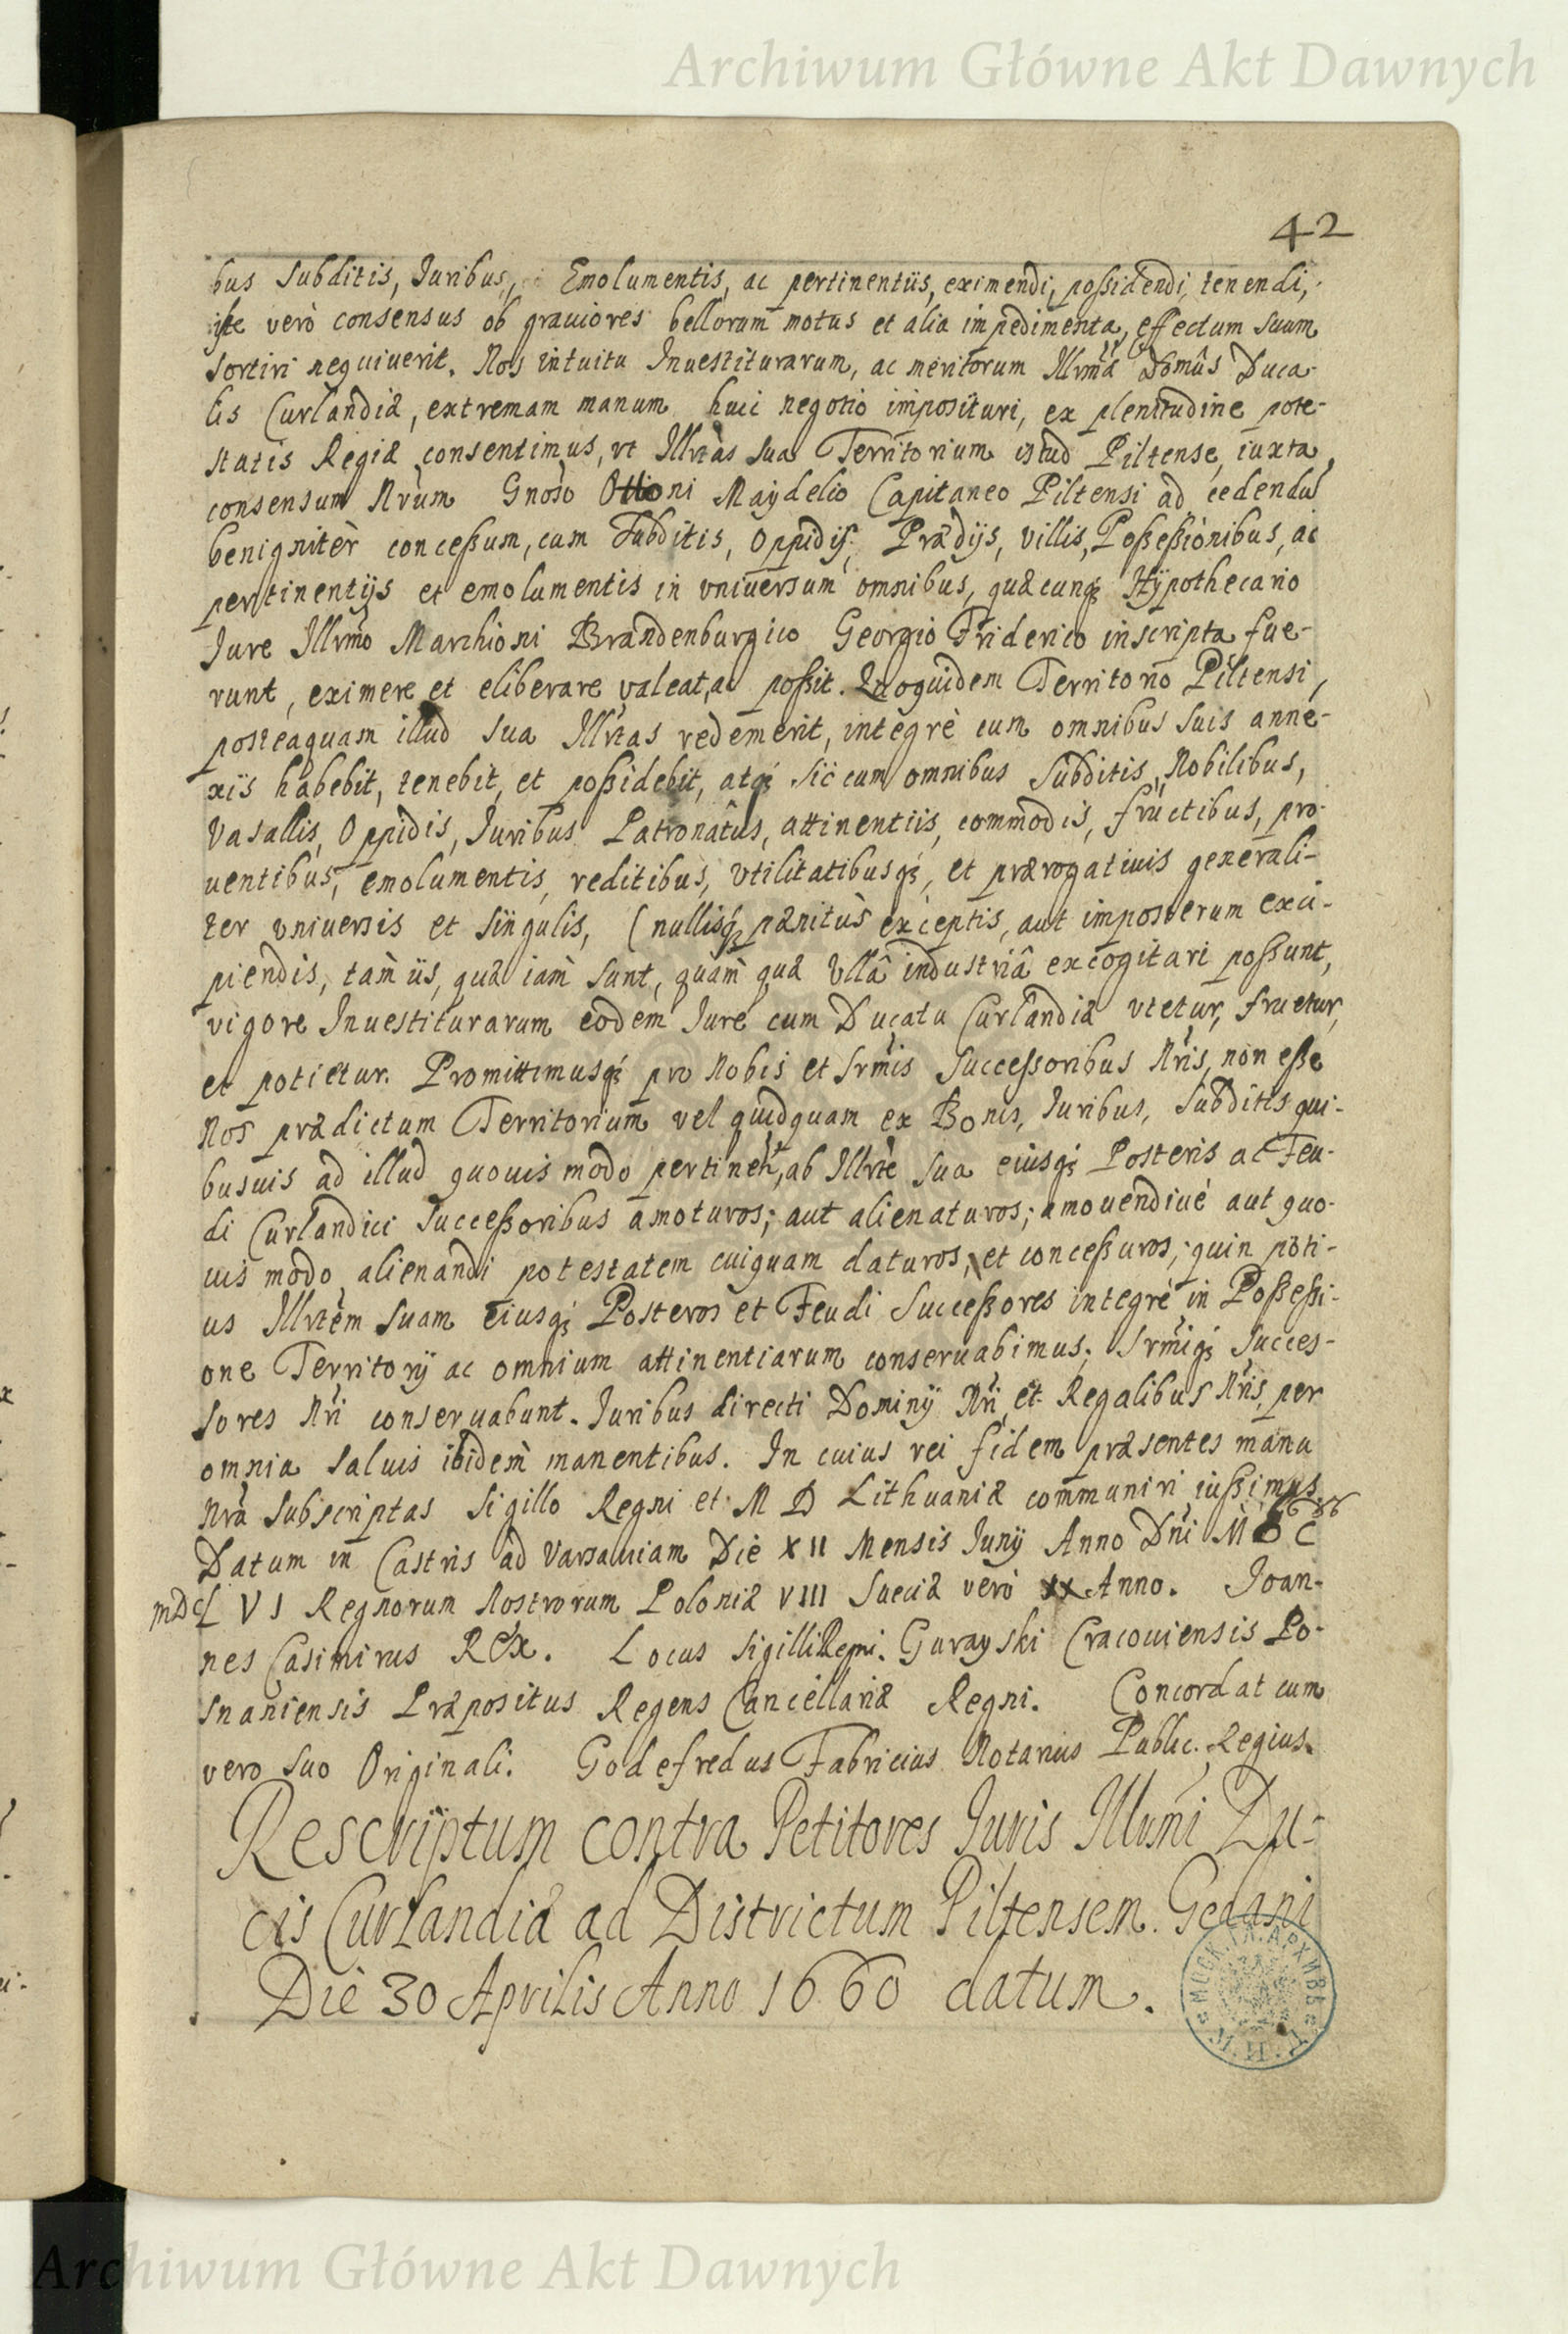 Archiwum Główne Akt Dawnych
42
bus Subditis, Juribus, Emolumentis, ac pertinentiis, eximendi, possidendi, tenendi,
iste verò consensus ob grauiores bellorum motus et alia impedimenta, effectum suum
sortiri nequiuerit. Nos intuitu Inuestiturarum, ac meritorum Illrmæ Domûs Duca-
lis Curlandiæ, extremam manum huic negotio imposituri, ex plenitudine pote-
statis Regiæ consentimus, vt Illrtas sua Territorium istud Piltense, iuxta
consensum Nrum Gnoso Ottoni Maydelio Capitaneo Piltensi ad cedendũ
benignitèr concessum, cum Subditis, Oppidis, Prædijs, villis, Possessionibus, ac
pertinentijs et emolumentis in vniuersum omnibus, quæcunq; Hypothecario
Jure Illrmo Marchioni Brandenburgico Georgio Friderico inscripta fue-
runt, eximere et eliberare valeat, ac possit. Quoquidem Territorio Piltensi,
posteaquam illud sua Illrtas redemerit, integrè cum omnibus suis anne-
xiis habebit, tenebit, et possidebit, atq; sic cum omnibus Subditis, Nobilibus,
Vasallis, Oppidis, Juribus Patronatûs, attinentiis, commodis, fructibus, pro-
uentibus, emolumentis, reditibus, vtilitatibusq;, et prærogatiuis generali-
ter vniuersis et singulis, (nullisq; pænitùs exceptis, aut imposterum exci-
piendis, tam iis, quæ iam sunt, quam quæ vllâ industriâ excogitari possunt,
vigore Inuestiturarum eodem Jure cum Ducatu Curlandiæ vtetur, fruetur,
et potietur. Promittimusq; pro Nobis et Srmis Successoribus Nris, non esse
Nos prædictum Territorium vel quidquam ex Bonis, Juribus, Subditis qui-
busuis ad illud quouis modo pertinen, ab Illrte sua eiusq; Posteris ac Feu-
di Curlandici Successoribus amoturos; aut alienaturos; amouendiué aut quo-
uis modo alienandi potestatem cuiquam daturos, et concessuros; quin poti-
us Illrtem suam eiusq; Posteros et Feudi Successores integrè in Possessi-
one Territorij ac omnium attinentiarum conseruabimus; Srmiq; Succes-
sores Nri conseruabunt. Juribus directi Dominij Nri et Regalibus Nris, per
omnia saluis ibidem manentibus. In cuius rei fidem præsentes manu
Nra subscriptas Sigillo Regni et M D Lithuaniæ communiri iussimus
Datum in Castris ad Varsauiam Die XII Mensis Junij Anno Dni M C
mDcL VI Regnorum Nostrorum Poloniæ VIII Sueciæ verò xx Anno. Joan-
nes Casimirus REx. Locus Sigilli Regni. Gurayski Cracouiensis Po-
snaniensis Præpositus Regens Cancellariæ Regni. Concordat cum
vero suo Originali. Godefredus Fabricius Notarius Public. Regius.
Rescriptum contra Petitores Juris Illrmi Du-
cis Curlandiæ ad Districtum Piltensem. Gedani
Die 30 Aprilis Anno 1660 datum.
Archiwum Główne Akt Dawnych